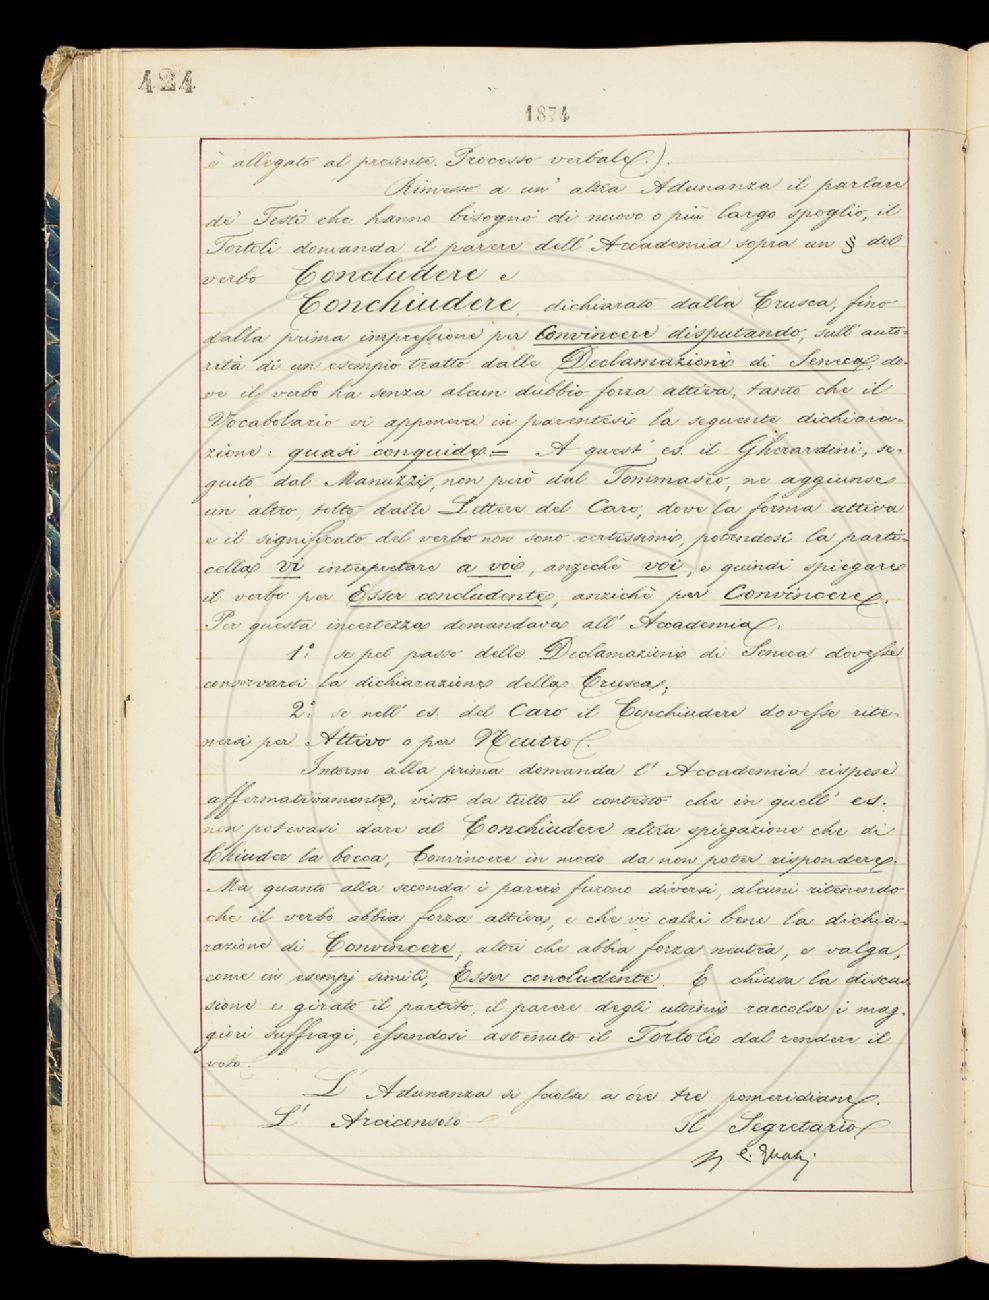 424
1874
è allegato al presente Processo verbale.).
Rimesso a un' altra Adunanza il parlare
de' Testi che hanno bisogno di nuovo o più largo spoglio, il
Tortoli domanda il parere dell' Accademia sopra un § del
verbo Concludere e
Conchiudere, dichiarato dalla Crusca, fino
dalla prima impressione per Convincere disputando, sull' auto-
rità di un esempio tratto dalle Declamazioni di Seneca, do-
ve il verbo ha senza alcun dubbio forza attiva, tanto che il
Vocabolario vi apponeva in parentesi la seguente dichiara-
zione: quasi conquide = A quest' es. il Gherardini, se-
guito dal Manuzzi, non però dal Tommaseo, ne aggiunse
un altro, tolto dalle Lettere del Caro, dove la forma attiva
e il significato del verbo non sono certissimi, potendosi la parti-
cella vi interpretare a voi, anzichè voi, e quindi spiegare
il verbo per Esser concludente, anzichè per Convincere.
Per questa incertezza domandava all' Accademia.
1.° se pel passo delle Declamazioni di Seneca dovesse
conservarsi la dichiarazione della Crusca;
2.° se nell' es. del Caro il Conchiudere dovesse rite-
nersi per Attivo o per Neutro.
Intorno alla prima domanda l' Accademia rispose
affermativamente, visto da tutto il contesto che in quell' es.
non potevasi dare al Conchiudere altra spiegazione che di
Chiuder la bocca, Convincere in modo da non poter rispondere.
Ma quanto alla seconda i pareri furono diversi, alcuni ritenendo
che il verbo abbia forza attiva, e che vi calzi bene la dichia-
razione di Convincere, altri che abbia forza neutra, e valga,
come in esempj simili, Esser concludente. E chiusa la discus-
sione e girato il partito, il parere degli ultimi raccolse i mag-
giori suffragi, essendosi astenuto il Tortoli dal rendere il
voto.
L' Adunanza si sciolse a ore tre pomeridiane.
L' Arciconsolo Il Segretario